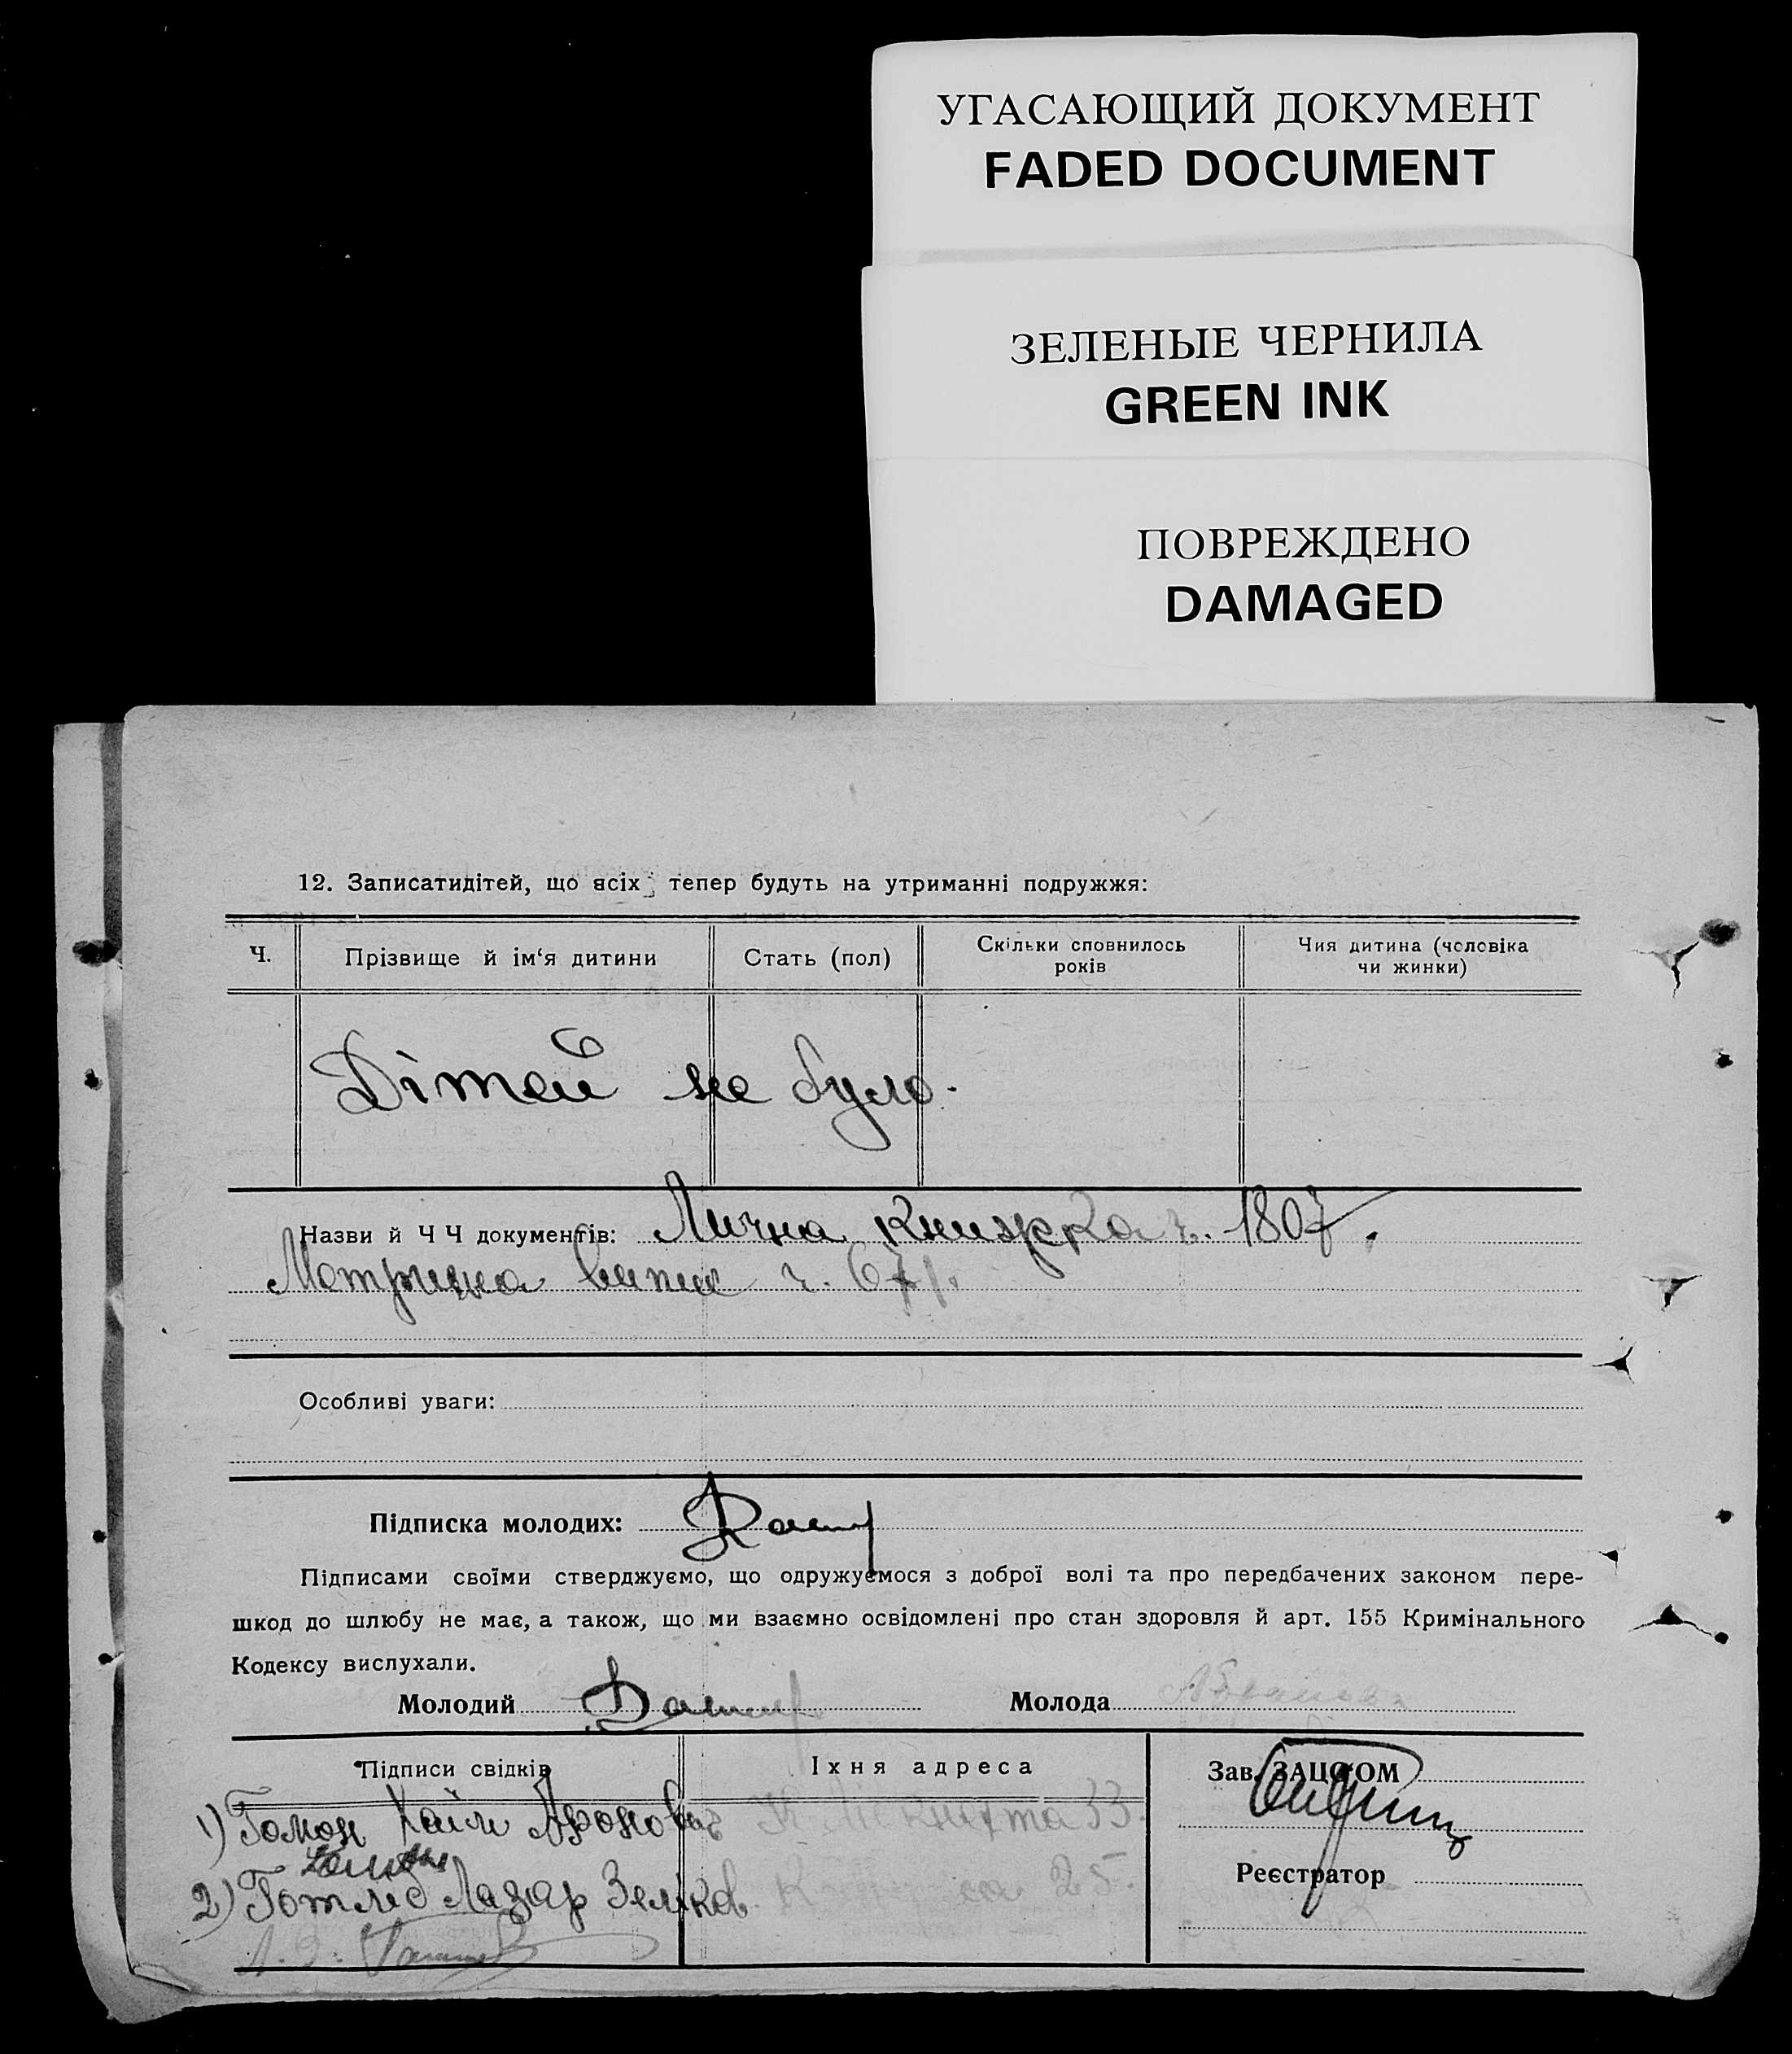 УГАСАЮЩИЙ ДОКУМЕНТ
FADED DOCUMENT
ЗЕЛЕНЫЕ ЧЕРНИЛА
GREEN INK
ПОВРЕЖДЕНО
DAMAGED
12. Записатидітей, що всіх тепер будуть на утриманні подружжя:
Ч. Прізвище й ім‘я дитини Стать (пол) Скільки сповнилось років Чия дитина (чоловіка чи жинки)
Дітей не було.
Назви й Ч Ч документів: Лична книжка ч. 1807.
Метрична випис ч. 67
Особливі уваги:
Підписка молодих:
Підписами своїми стверджуємо, що одружуємося з доброї волі та про передбачених законом пере-
шкод до шлюбу не має, а також, що ми взаємно освідомлені про стан здоровля й арт. 155 Кримінального
Кодексу вислухали.
Молодий Молода
Підписи свідків Їхня адреса Зав. ЗАЦСОМ
1) Гомон Хаїм Аронович 33.
2) Готліб Лазар Зелков 25.
Реєстратор